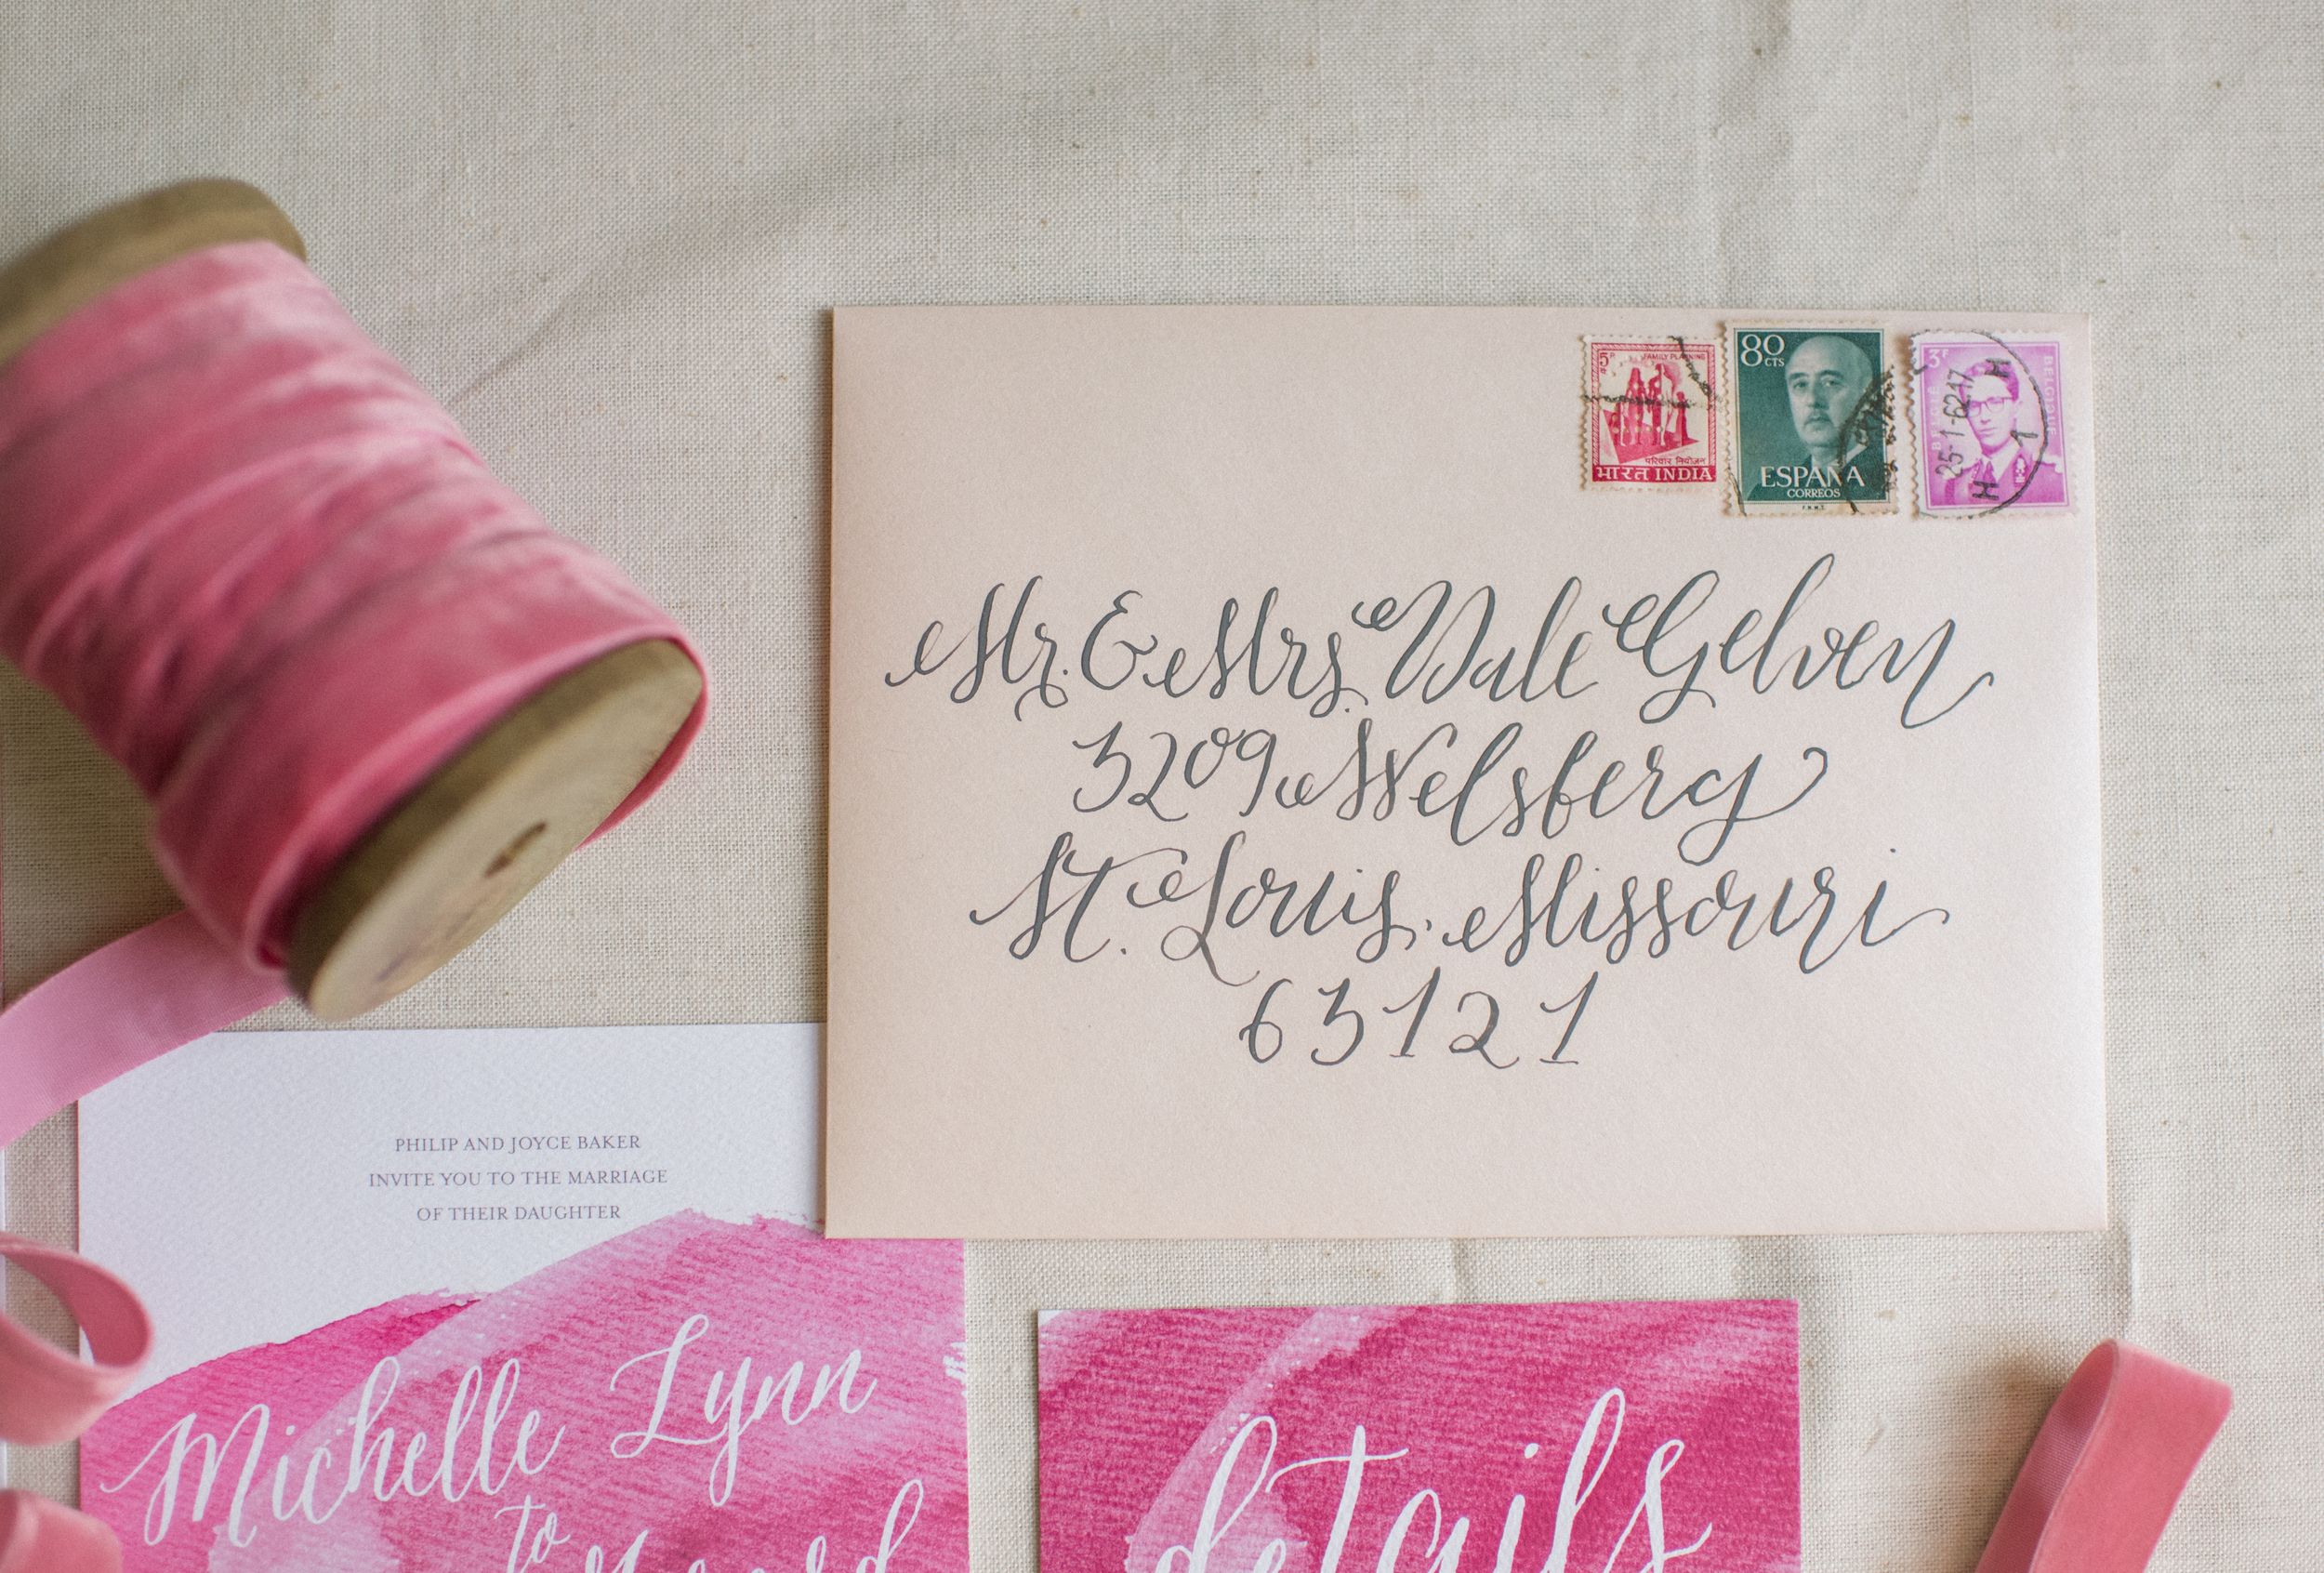 5 P
FAMILY PLANNING
परिवार नियोजन
भारत INDIA
80
CTS
ESPAÑA
CORREOS
F.N.M.T.
3F
BELGIQUE
25-1-62 17
H
1
H
Mr. & Mrs. Dale Gelven
3209 Welsberg
St. Louis, Missouri
63121
PHILIP AND JOYCE BAKER
INVITE YOU TO THE MARRIAGE
OF THEIR DAUGHTER
Michelle Lynn
to
details